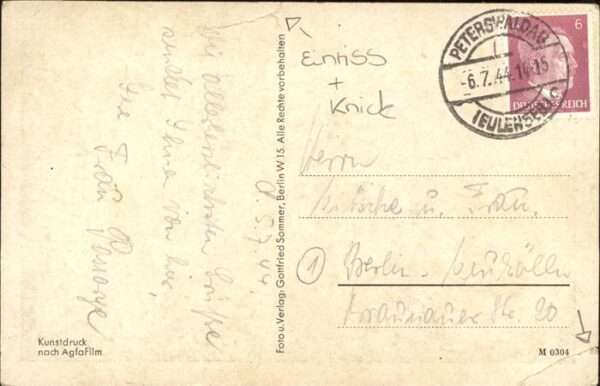 die allerherzlichsten Grüße
sendet Ihnen von hier,
Ihre Frau
d. 5.7.44.
Kunstdruck
nach Agfafilm
Foto u. Verlag: Gottfried Sommer, Berlin W 15. Alle Rechte vorbehalten
Einriss
+
Knick
PETERSWALDAU
-6.7.44.14-15
(EULENGEB.)
6
DEUTSCHES REICH
Herrn
u. Frau.
① Berlin-Neukölln
Str. 20
M 0304